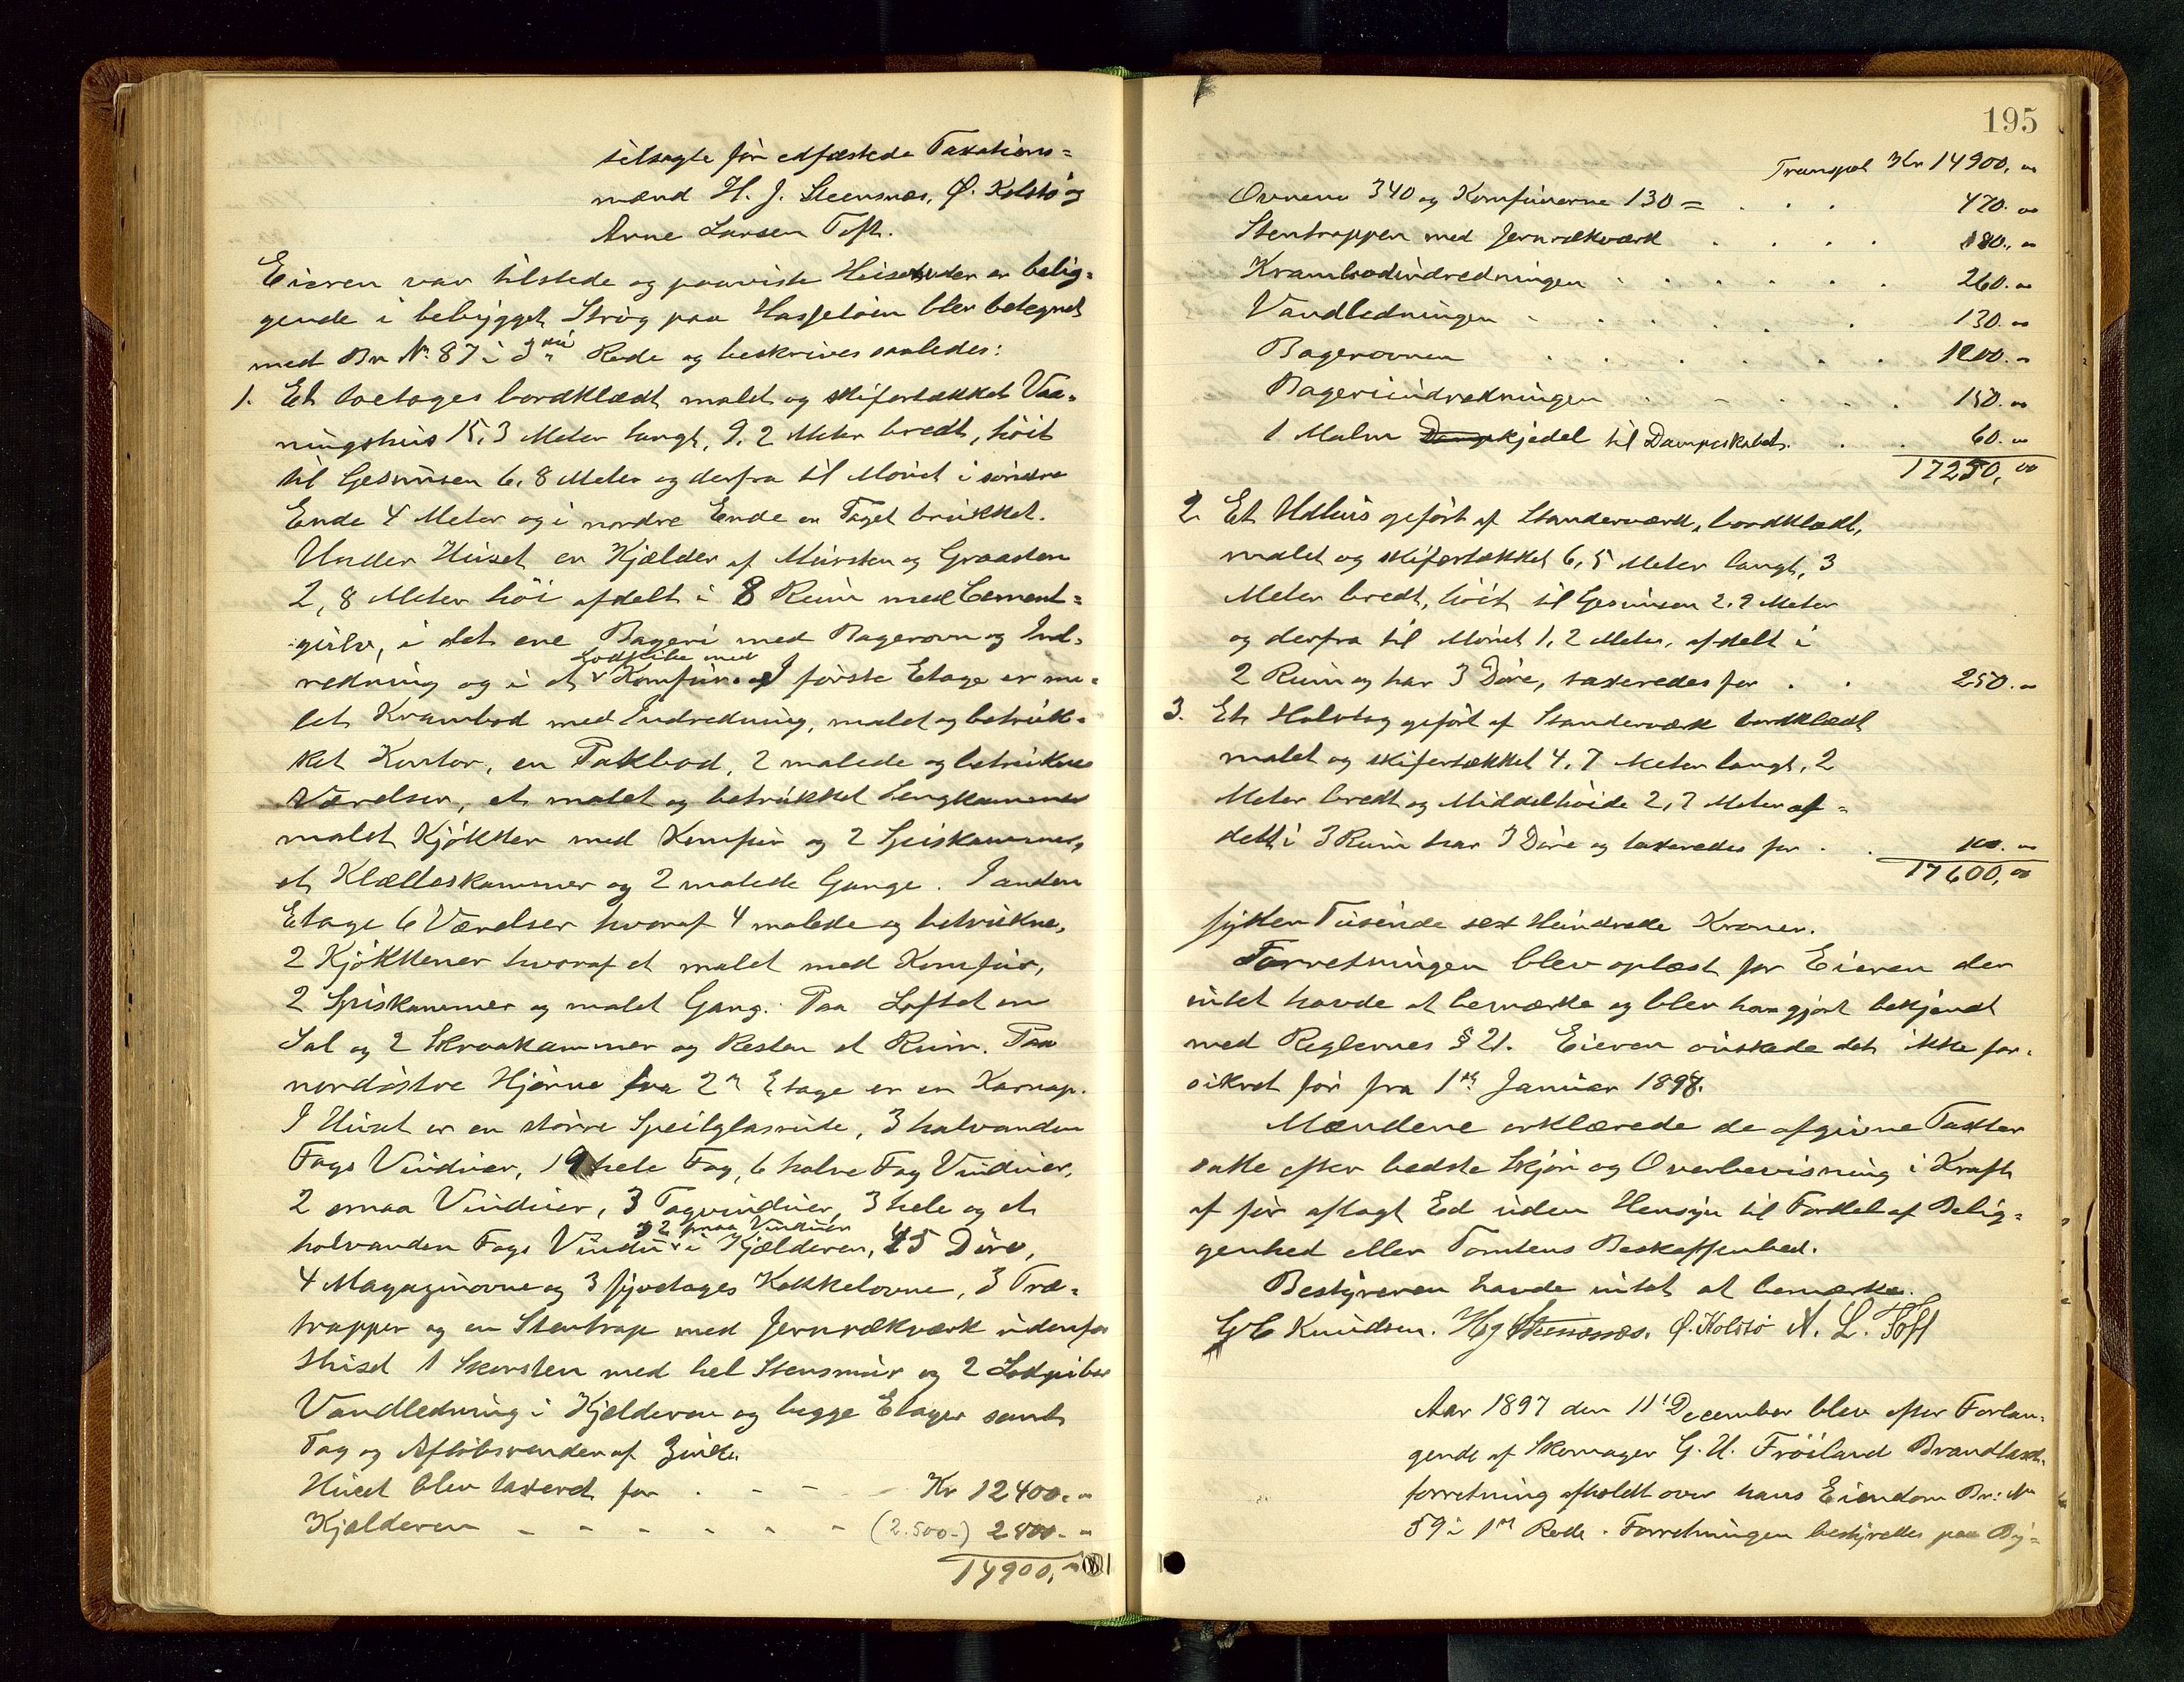 tilsagte før edfæstede Taxations=
mænd H. J. Steensnæs, Ø. Kolstø og
Arne Larsen Toft.
Eieren var tilstede og paaviste Huset der er belig=
gende i bebygget Strøg paa Hasseløen blev betegnet
med Br N. 87 i 3die Rode og beskrives saaledes:
1. Et toetages bordklædt malet og skifertækket Vaa=
ningshus 15,3 Meter langt, 9,2 Meter bredt, høit
til Gesimsen 6,8 Meter og derfra til Mønet i søndre
Ende 4 Meter og i nordre Ende er Taget brukket.
Under Huset en Kjælder af Mursten og Graasten
2,8 Meter høi afdelt i 8 Rum med Cement=
gulv, i det ene Bageri med Bagerovn og Ind=
redning og i et Komfur. I første Etage er ma=
let Krambod med Indredning, malet og betruk=
ket Kontor, en Pakbod, 2 malede og betrukne
Værelser, et malet og betrukket Sengkammer
malet Kjøkken med Komfur og 2 Spiskammer,
et Klædeskammer og 2 malede Gange. I anden
Etage 6 Værelser hvoraf 4 malede og betrukne,
2 Kjøkkener hvoraf et malet med Komfur,
2 Spiskammer og malet Gang. Paa Loftet en
Sal og 2 Skraakammer og Resten et Rum. Paa
nordøstre Hjørne fra 2n Etage er en Karnap.
I Huset er en større Speilglasrude, 3 halvanden
Fags Vinduer, 19 hele Fag, 6 halve Fag Vinduer,
2 smaa Vinduer, 3 Tagvinduer, 3 hele og et
og 2 smaa Vinduer
halvanden Fags Vindu i Kjælderen, 45 Døre,
4 Magazinovne og 3 fyretages Kakkelovne, 3 Træ=
trapper og en Stentrap med Jernrækværk udenfor
Huset 1 Skorsten med hel Stensmur og 2 Lodpiber
Vandledning i Kjælderen og begge Etager samt
Tag og Afløbsrender af Zink.
Huset blev taxeret for . - - - Kr 12400.-
Kjælderen - - - - - - (2.500-) 2500.-
14900,-
195
Transport Kr 14900,00
Ovnene 340 og Komfurerne 130 = . . . 470.00
Stentrappen med Jernrækværk . . . . 180.,00
Krambodindredningen . . . . . . 260.00
Vandledningen . . . . . . 130.00
Bagerovnen . . . . . . 1200.-
Bageriindredningen . - - . . . 150.00
1 Malm Dampkjedel til Dampskabet. . . 60.00
17250,00
2. Et Udhus opført af Standerværk, bordklædt,
malet og skifertækket 6,5 Meter langt, 3
Meter bredt, høit til Gesimsen 2.2 Meter
og derfra til Mønet 1,2 Meter, afdelt i
2 Rum og har 3 Døre, taxeredes for . . 250.00
3. Et Halvtag opført af Standerværk bordklædt
malet og skifertækket 4,7 Meter langt, 2
Meter bredt og Middelhøide 2,7 Meter af=
delt i 3 Rum har 3 Døre og taxeredes for . . 100.00
17600,00
sytten Tusinde sex Hundrede Kroner.
Forretningen blev oplæst for Eieren der
intet havde at bemærke og blev han gjort bekjendt
med Reglernes § 21. Eieren ønskede det ikke for=
sikret før fra 1ste Januar 1898.
Mændene erklærede de afgivne Taxter
satte efter bedste Skjøn og Overbevisning i Kraft
af før aflagt Ed uden Hensyn til Fordel af Belig=
genhed eller Tomtens Beskaffenhed.
Bestyreren havde intet at bemærke.
Knudsen. H J Steensnæs. Ø. Kolstø A. L. Toft
Aar 1897 den 11' December blev efter Forlan=
gende af Skomager G. U. Frøiland Brandtaxt=
forretning afholdt over hans Eiendom Br: N
59 i 1ste Rode. Forretningen bestyredes paa By=